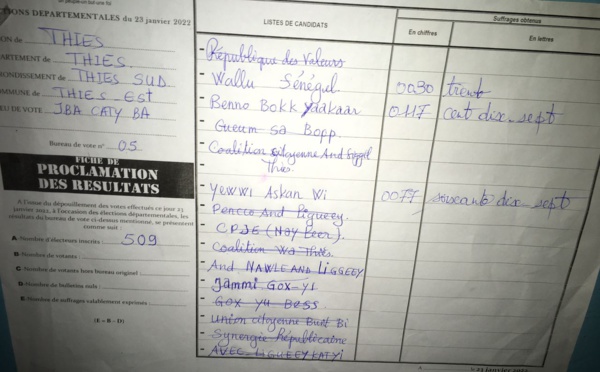 Un peuple-un but-une foi
IONS DEPARTEMENTALES du 23 janvier 2022
ON de : THIES
PARTEMENT de : THIES.
RONDISSEMENT de : THIES SUD
OMMUNE de : THIES EST
EU DE VOTE : JBA CATY BA
Bureau de vote n° : 05
FICHE DE
PROCLAMATION
DES RESULTATS
A l'issue du dépouillement des votes effectués ce jour 23
janvier 2022, à l'occasion des élections départementales, les
résultats du bureau de vote ci-dessus mentionné, se présentent
comme suit :
A- Nombre d'électeurs inscrits : 509
B- Nombre de votants :
C- Nombre de votants hors bureau originel :
D- Nombre de bulletins nuls :
E- Nombre de suffrages valablement exprimés :
(E = B - D)
LISTES DE CANDIDATS
Suffrages obtenus
En chiffres
En lettres
République des Valeurs
- Wallu Sénégal 0030 trente
- Benno Bokk Yaakaar 0117 cent dix-sept
- Gueum sa Bopp.
- Coalition citoyenne And
Thies.
- Yewwi Askan Wi 0077 soixante dix-sept
- Pencco And Liggeey.
- C.PJE (Nay Leer).
- Coalition Wa Thiès.
- And NAWLE AND LIGGEEY
- Jammi GOX-YI
- GOX YU BESS
- Union citoyenne Bunt Bi
- Synergie Républicaine
- AVEC LIGUEEY KATYI
23 janvier 2022